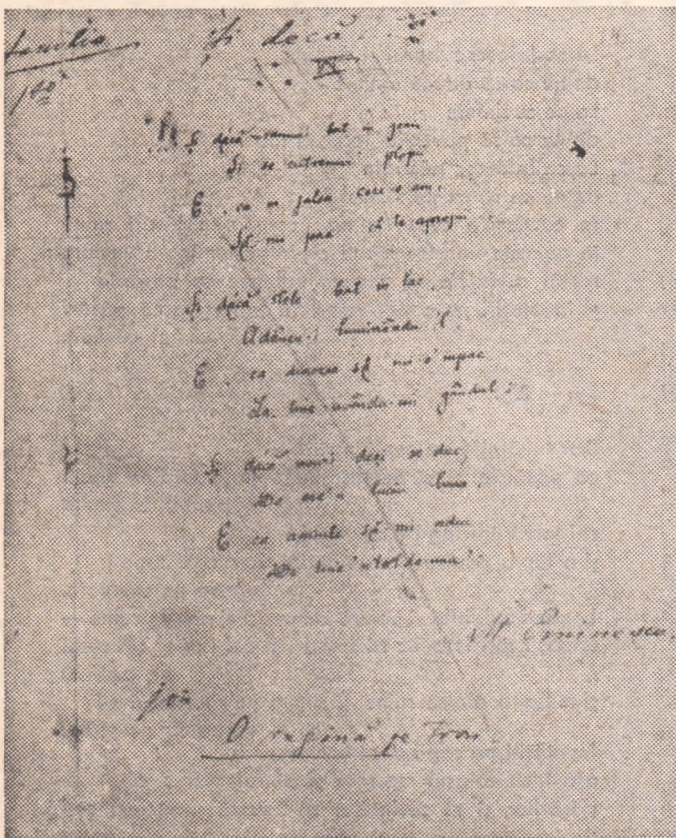 familia Și dacă
IX
Și dacă ramuri bat în geam
Și se cutremur plopii
E ca
Să mi pară că te apropii
Și dacă stele bat în lac
Adâncu-i luminându-l
E ca durerea să mi-o 'mpac
gândul;
Și dacă norii deși se duc
De luciu luna
E ca aminte să-mi aduc
De tine 'ntotdeuna
M. Eminescu.
jos
O regină pe Tron